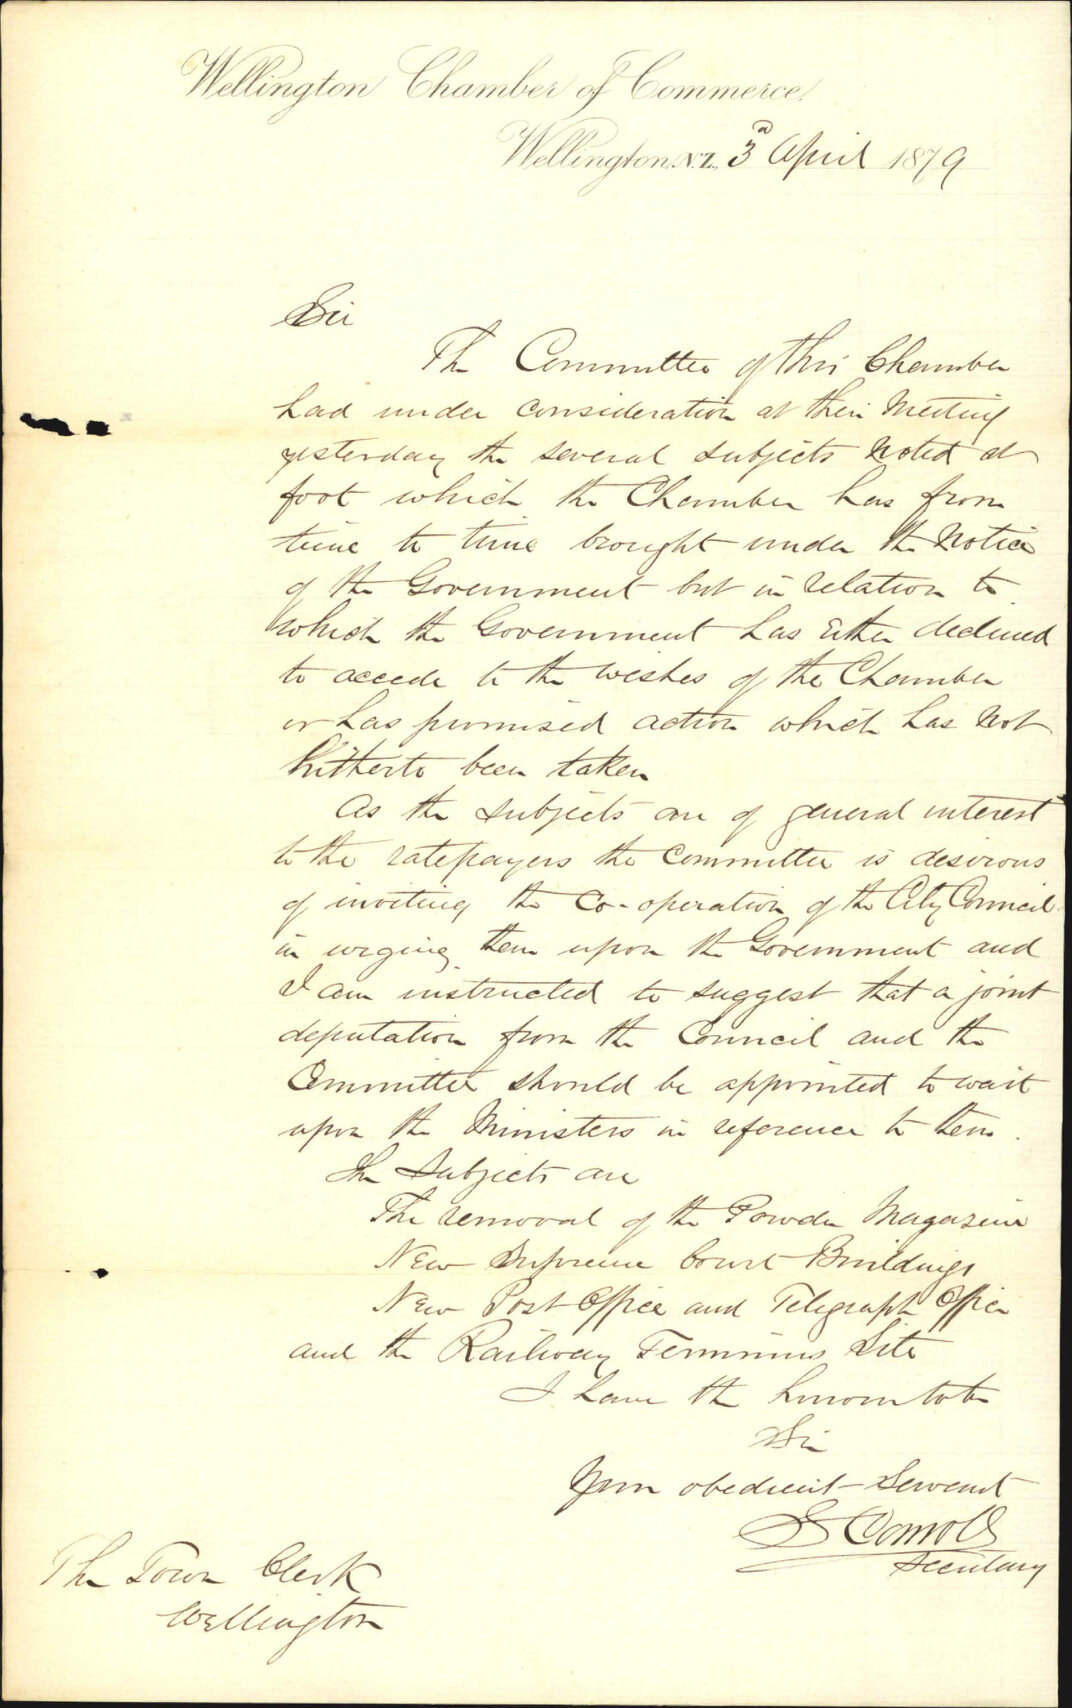 Wellington Chamber of Commerce.
Wellington N.Z., 3d April 1879
Sir
The Committee of this Chamber
had under consideration at their Meeting
yesterday the several subjects noted at
foot which the Chamber has from
time to time brought under the Notice
of the Government but in relation to
which the Government has either declined
to accede to the wishes of the Chamber
or has promised action which has not
hitherto been taken
As the subjects are of general interest
to the ratepayers the Committee is desirous
of inviting the Co-operation of the City Council
in urging them upon the Government and
I am instructed to suggest that a joint
deputation from the Council and the
Committee should be appointed to wait
upon the Ministers in reference to them.
The Subjects are
The removal of the Powder Magazine
New Supreme Court Buildings
New Post Office and Telegraph Office
and the Railway Terminus Site
I have the honour to be
Sir
Your obedient Servant
S Carroll
Secretary
The Town Clerk
Wellington